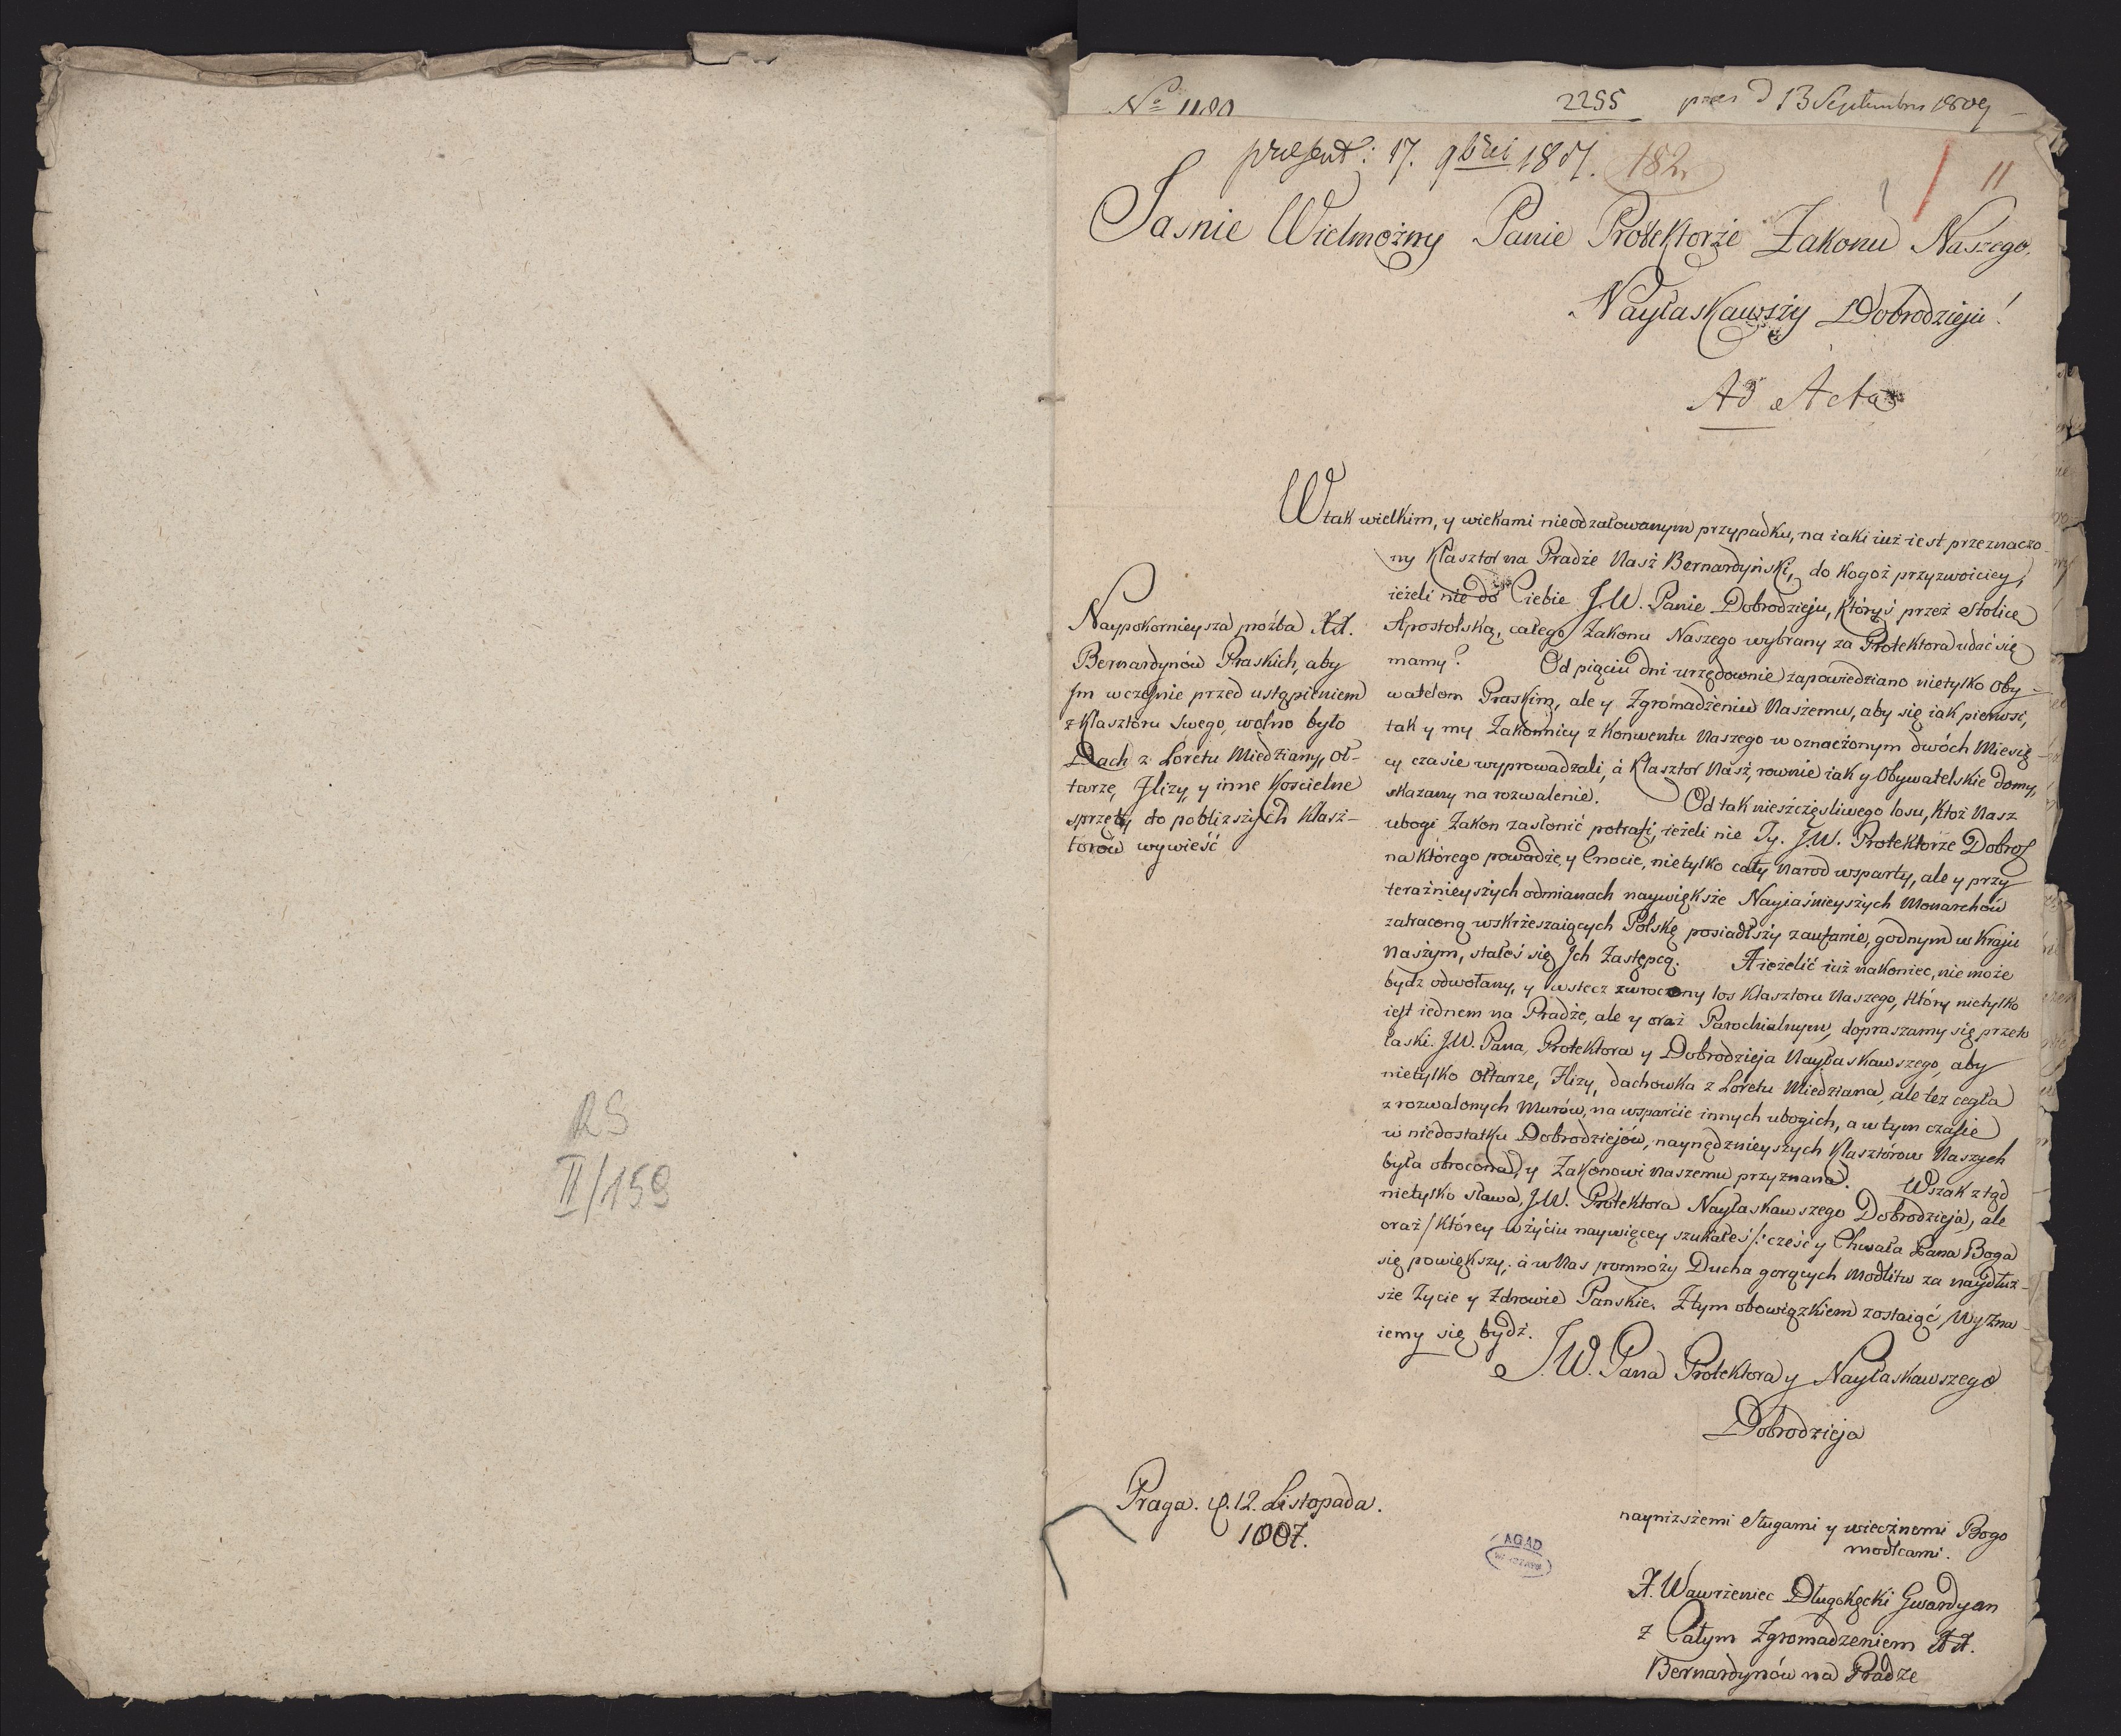 RS
II/159
No 1180
2255 præs d 13 Septembris 1809
præsent: 17. 9brei 1807. 182.
11
Jasnie Wielmożny Panie Protektorze Zakonu Naszego.
Nayłaskawszy Dobrodzieju!
Ad Acta
Naypokornieysza proźba XX.
Bernardynów Praskich, aby
Jm wcześnie przed ustąpieniem
z Klasztoru Swego, wolno było
Dach z Loretu Miedziany, oł-
tarze, Flizy, y inne Kościelne
sprzęty do pobliższych Klasz-
torow wywieść
W tak wielkim, y wiekami nieodzałowanym przypadku, na iaki iuż iest przeznaczo-
ny Klasztor na Pradze Nasz Bernardyński, do kogoż przyzwoiciey,
ieżeli nie do Ciebie J.W. Panie Dobrodzieju, któryś przez Stolicę
Apostolską, całego Zakonu Naszego wybrany za Protektora udać się
mamy? Od pięciu dni urzędownie zapowiedziano nietylko Oby-
watelom Praskim, ale y Zgromadzeniu Naszemu, aby się iak pierwsi,
tak y my Zakonnicy z Konwentu Naszego w oznaczonym dwóch Miesię-
cy czasie wyprowadzali, á Klasztor Nasz, rownie iak y Obywatelskie domy,
skazany na rozwalenie. Od tak nieszczęsliwego losu, Ktoż Nasz
ubogi Zakon zasłonić potrafi, ieżeli nie Ty. J.W. Protektorze Dobrof
na Którego powadze y Cnocie, nietylko cały Narod wsparty, ale y przy
teraźnieyszych odmianach naywiększe Nayiaśnieyszych Monarchów
zatraconą wskrzeszaiących Polskę posiadłszy zaufanie, godnym w Kraju
Naszym, stałeś się Jch Zastępcą. A ieżelić iuż nakoniec, nie może
bydz odwołany, y wstecz zwroczony los Klasztoru Naszego, Który nietylko
iest iednem na Pradze, ale y oraz Parochialnym, dopraszamy się przeto
łaski J.W. Pana, Protektora y Dobrodzieja Nayłaskawszego, aby
nietylko Ołtarze, Flizy, dachowka z Loretu Miedziana, ale też cegła
z rozwalonych Murów, na wsparcie innych ubogich, a w tym czasie
w niedostatku Dobrodziejów, naynędznieyszych Klasztórow Naszych
była obrocona, y Zakonowi Naszemu przyznana. Wszak ztąd
nietylko sława, J.W. Protektora Nayłaskawszego Dobrodzieja, ale
oraz /Którey w życiu naywięcey szukałeś/: cześć y Chwała Pana Boga
się powiększy, á w Nas pomnoży Ducha gorących Modlitw za naydłuż-
sze Życie y Zdrowie Panskie. Z tym obowiązkiem zostaiąc, Wyzna-
iemy się bydź.
J.W. Pana Protektora y Nayłaskawszego
Dobrodzieja
Praga. d. 12. Listopada.
1807.
AGAD
nayniższemi Sługami y wiecznemi Bogo
modlcami.
X. Wawrzeniec Długokęcki Gwardyan
z Całym Zgromadzeniem XX.
Bernardynów na Pradze